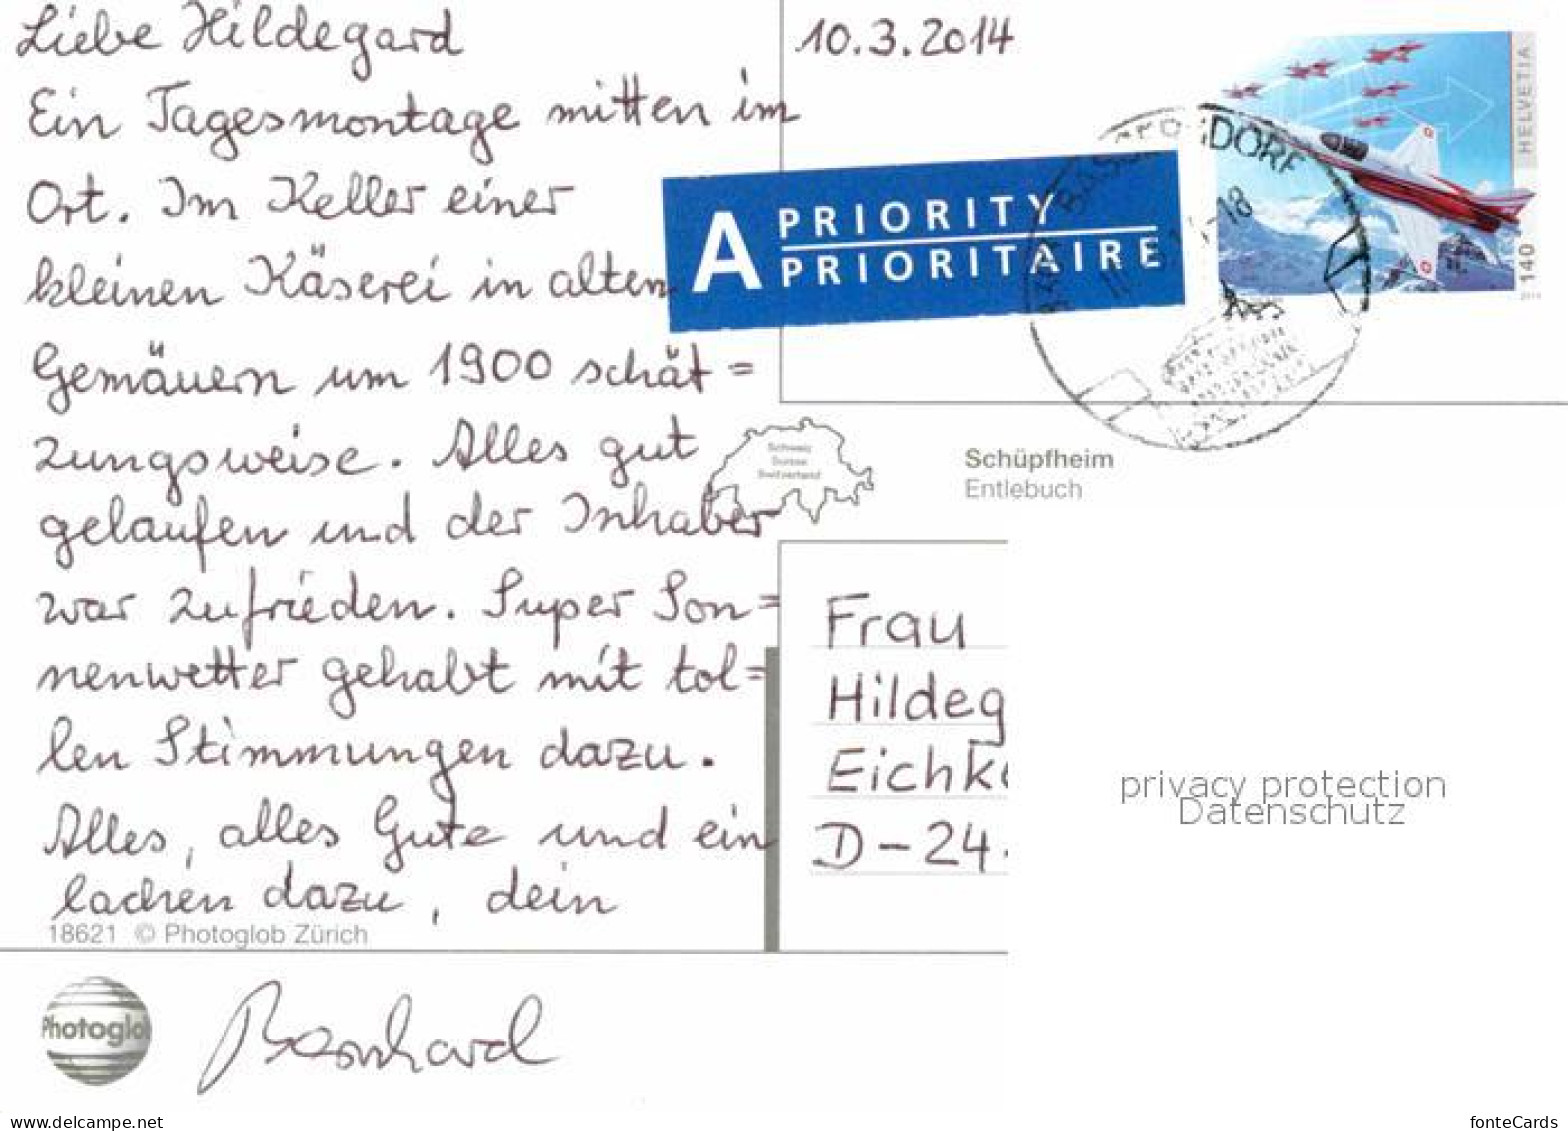 Liebe Hildegard
Ein Tagesmontage mitten im
Ort. Im Keller einer
kleinen Käserei in alten
Gemäuern um 1900 schät=
zungsweise. Alles gut
gelaufen und der Inhaber
war zufrieden. Super Son=
nenwetter gehabt mit tol=
len Stimmungen dazu.
Alles, alles Gute und ein
lachen dazu, dein
18621 © Photoglob Zürich
Photoglo
Bernhard
10.3.2014
A PRIORITY
PRIORITAIRE
HELVETIA
140
DORF
-18
Schweiz
Suisse
Switzerland
Schüpfheim
Entlebuch
Frau
Hildeg
Eichk
D-24.
privacy protection
Datenschutz
www.delcampe.net
fonteCards